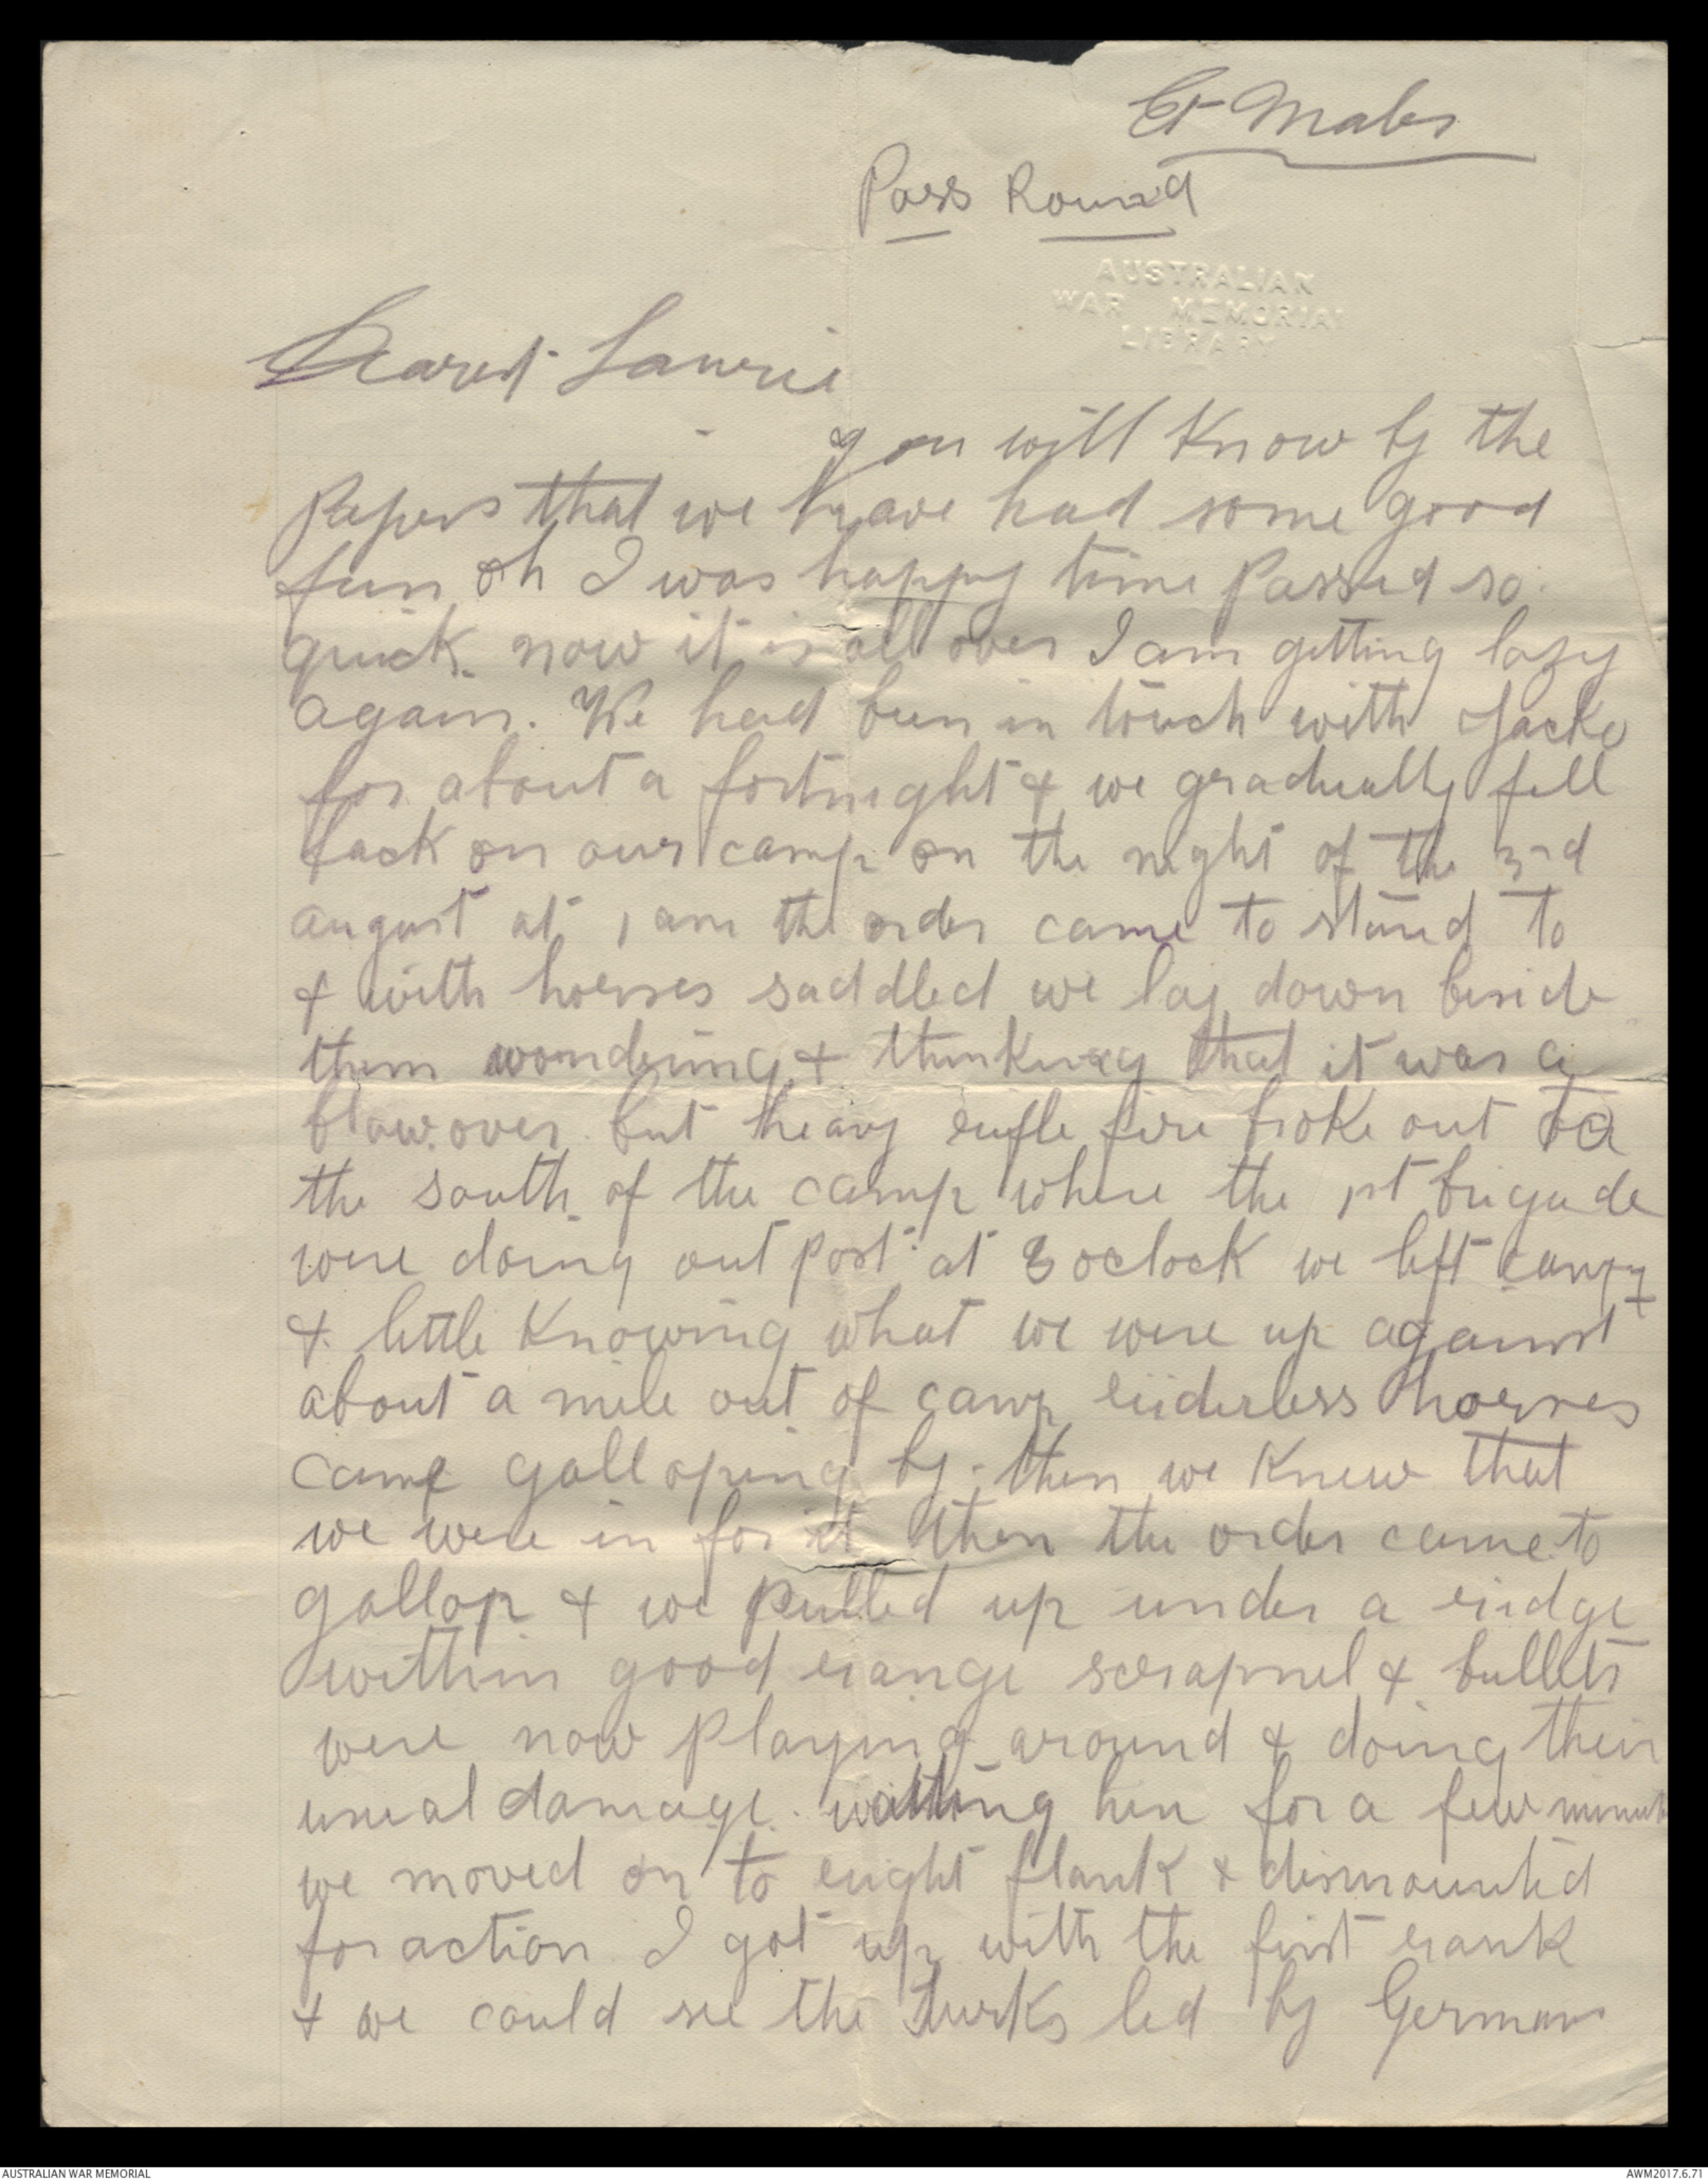 Et Maler
Pass Round
AUSTRALIAN
WAR MEMORIAL
LIBRARY
Dearest Laurie
you will know by the
Papers that we have had some good
fun oh I was happy time Passed so
quick. now it is all over I am getting lazy
again. We had been in touch with Jacko
for about a fortnight & we gradually fell
back on our camp on the night of the 3rd
august at 1 am the order came to stand to
& with horses saddled we lay down beside
them wondering & thinking that it was a
blow over. but heavy rifle fire broke out to
the south of the camp where the 1st brigade
were doing out post. at 3 oclock we left camp
& little knowing what we were up against
about a mile out of camp riderless horses
came galloping by. then we knew that
we were in for it then the order came to
gallop & we pulled up under a ridge
within good range scrapnel & bullets
were now playing around & doing their
usual damage. waiting here for a few
we moved on to right flank & dismounted
for action I got up with the first rank
& we could see the Turks led by German
AUSTRALIAN WAR MEMORIAL
AWM2017.6.71